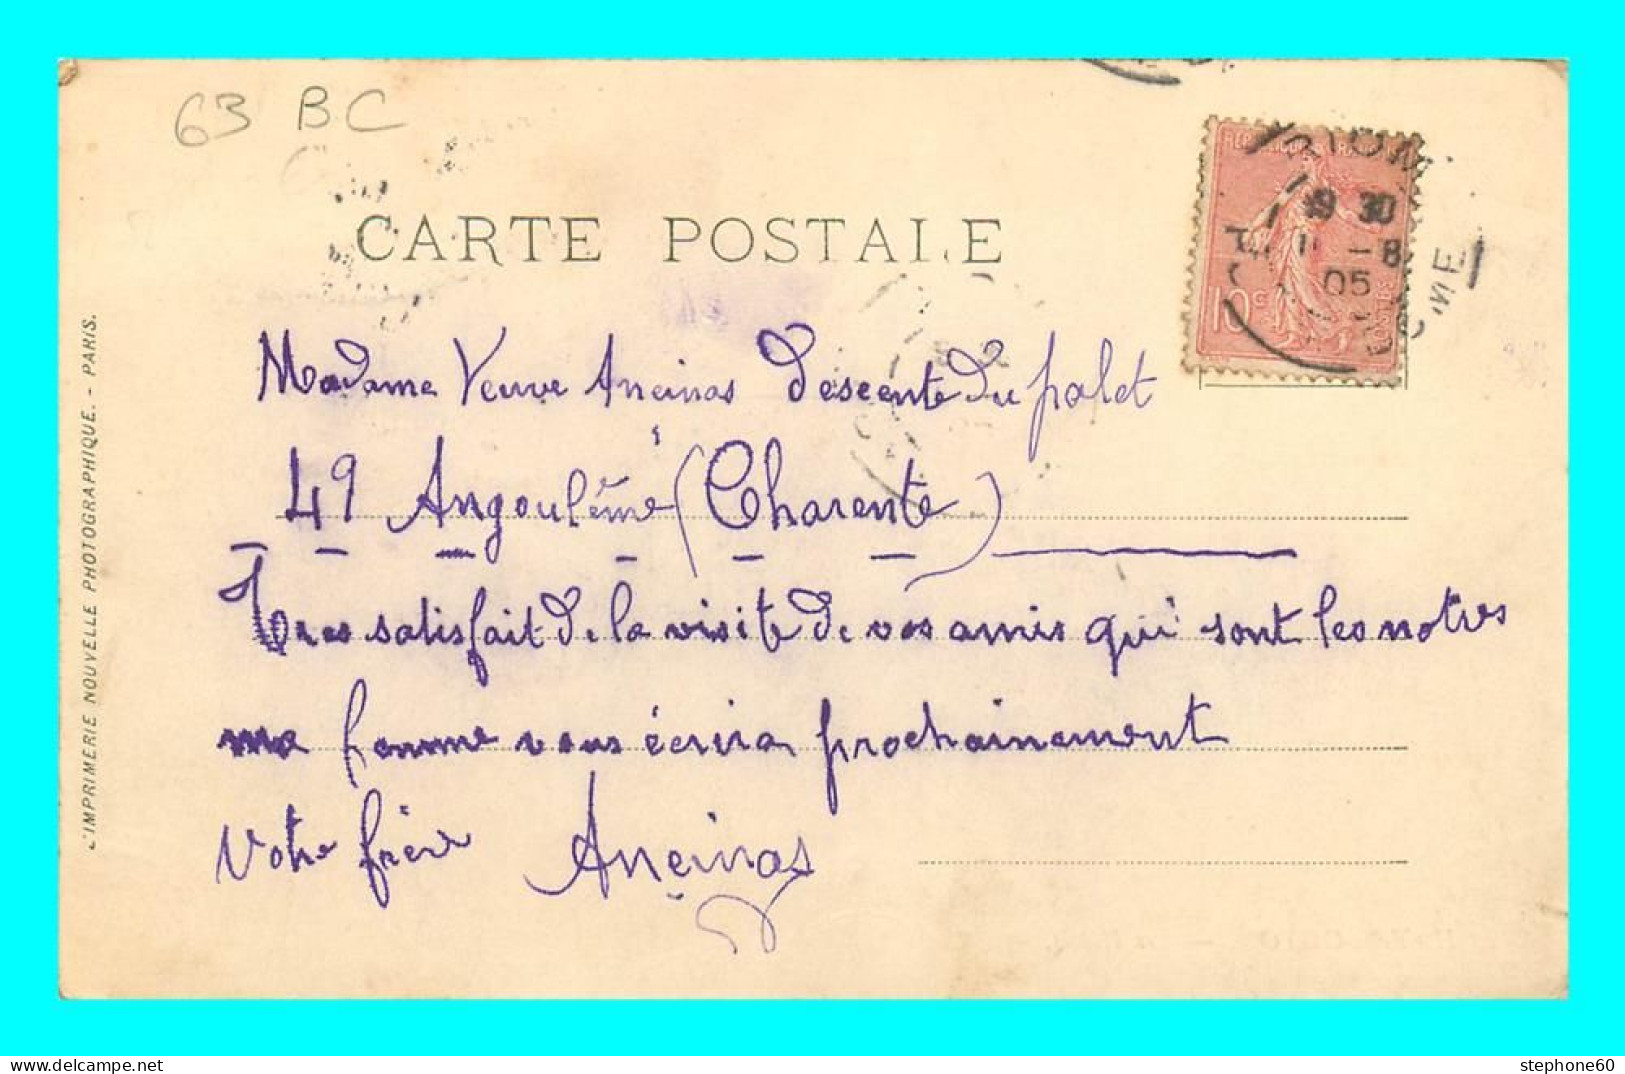 63 BC
CARTE POSTALE
RIOM
19 30
11 -8
05
PUY DOME
10c
Madame Veuve Aneinas Descente Du palet
49 Angoulême (Charente)
Tres satisfait De la visite De vos amis qui sont les notres
ma femme vous écrira prochainement
Votre frère Aneinas
L'IMPRIMERIE NOUVELLE PHOTOGRAPHIQUE. - PARIS.
stephone60